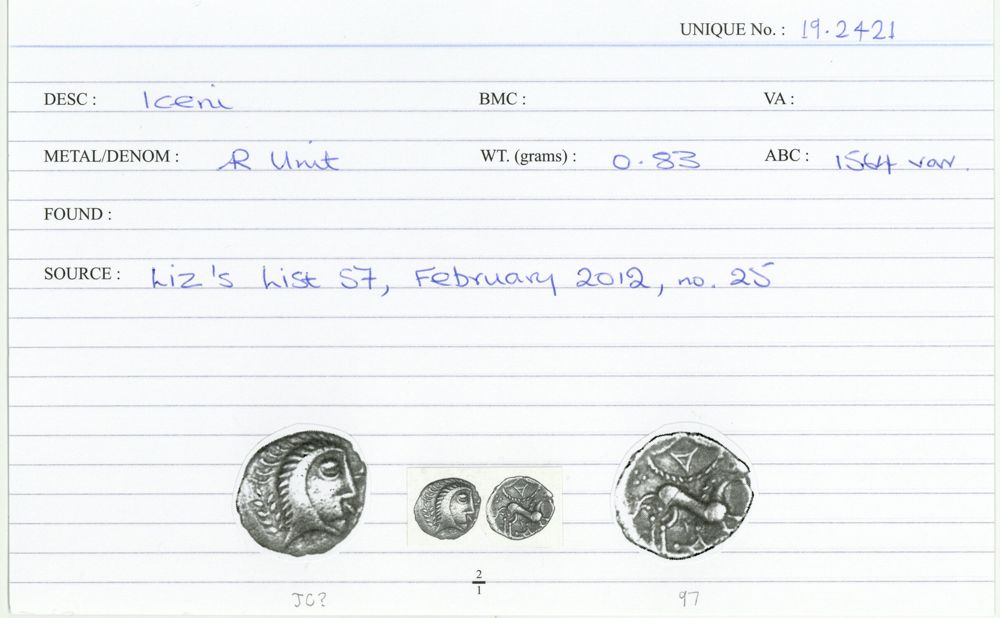 UNIQUE No. : 19.2421
DESC : Iceni BMC : VA :
METAL/DENOM : AR Unit WT. (grams) : 0.83 ABC : 1564 var.
FOUND :
SOURCE : Liz's List 57, February 2012, no. 25
2
1
JC? 97